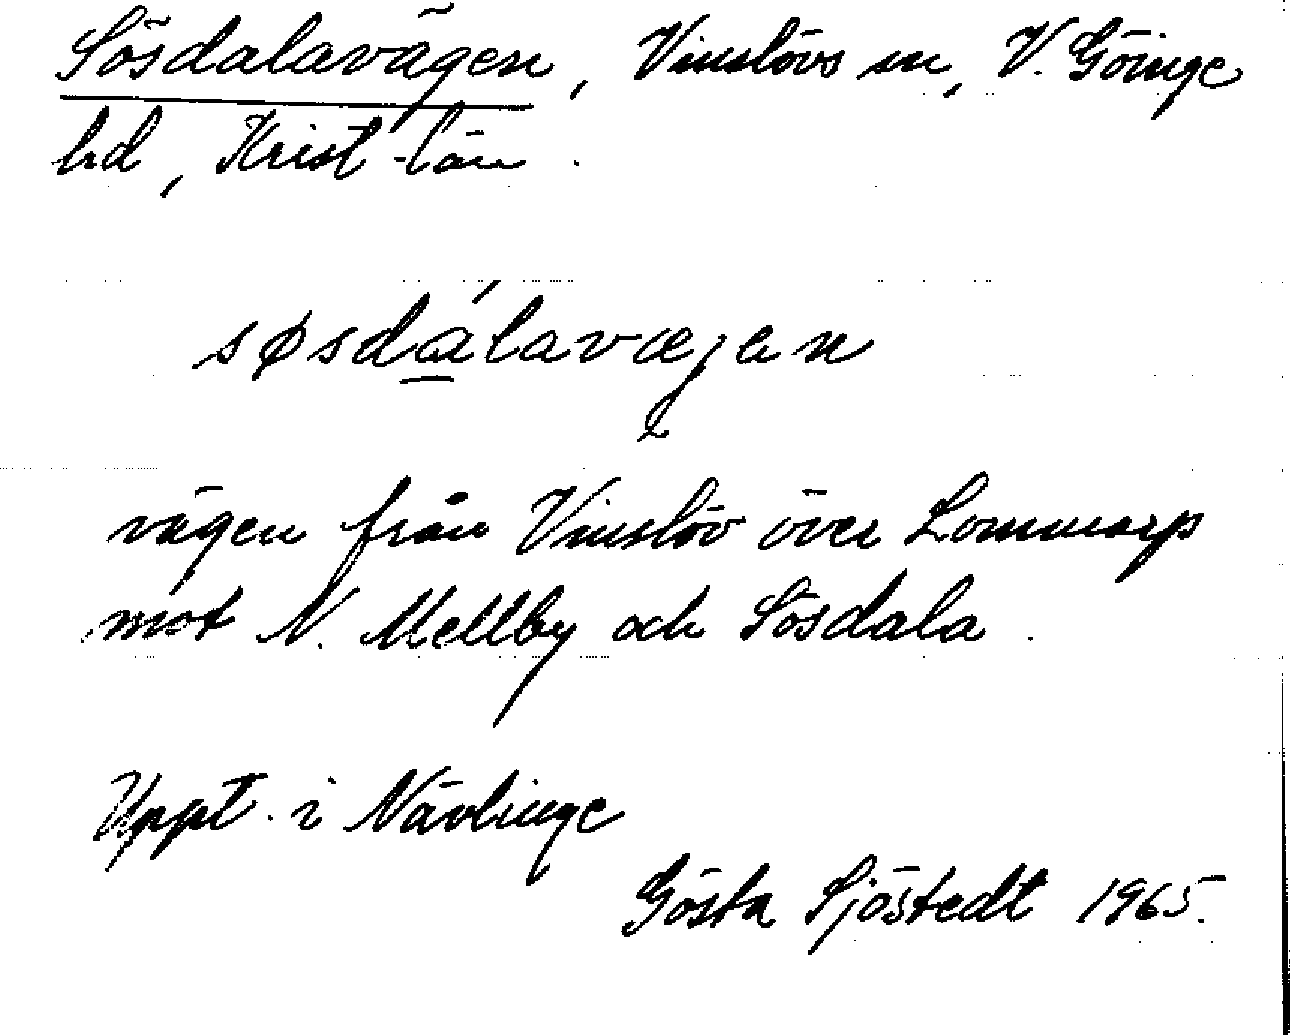 Sösdalavägen, Vinslövs sn, V. Göinge
hd, Krist-län.
søsdálavæjan
vägen från Vinslöv över Lommarp
mot N. Mellby och Sösdala.
Uppt. i Nävlinge
Gösta Sjöstedt 1965.